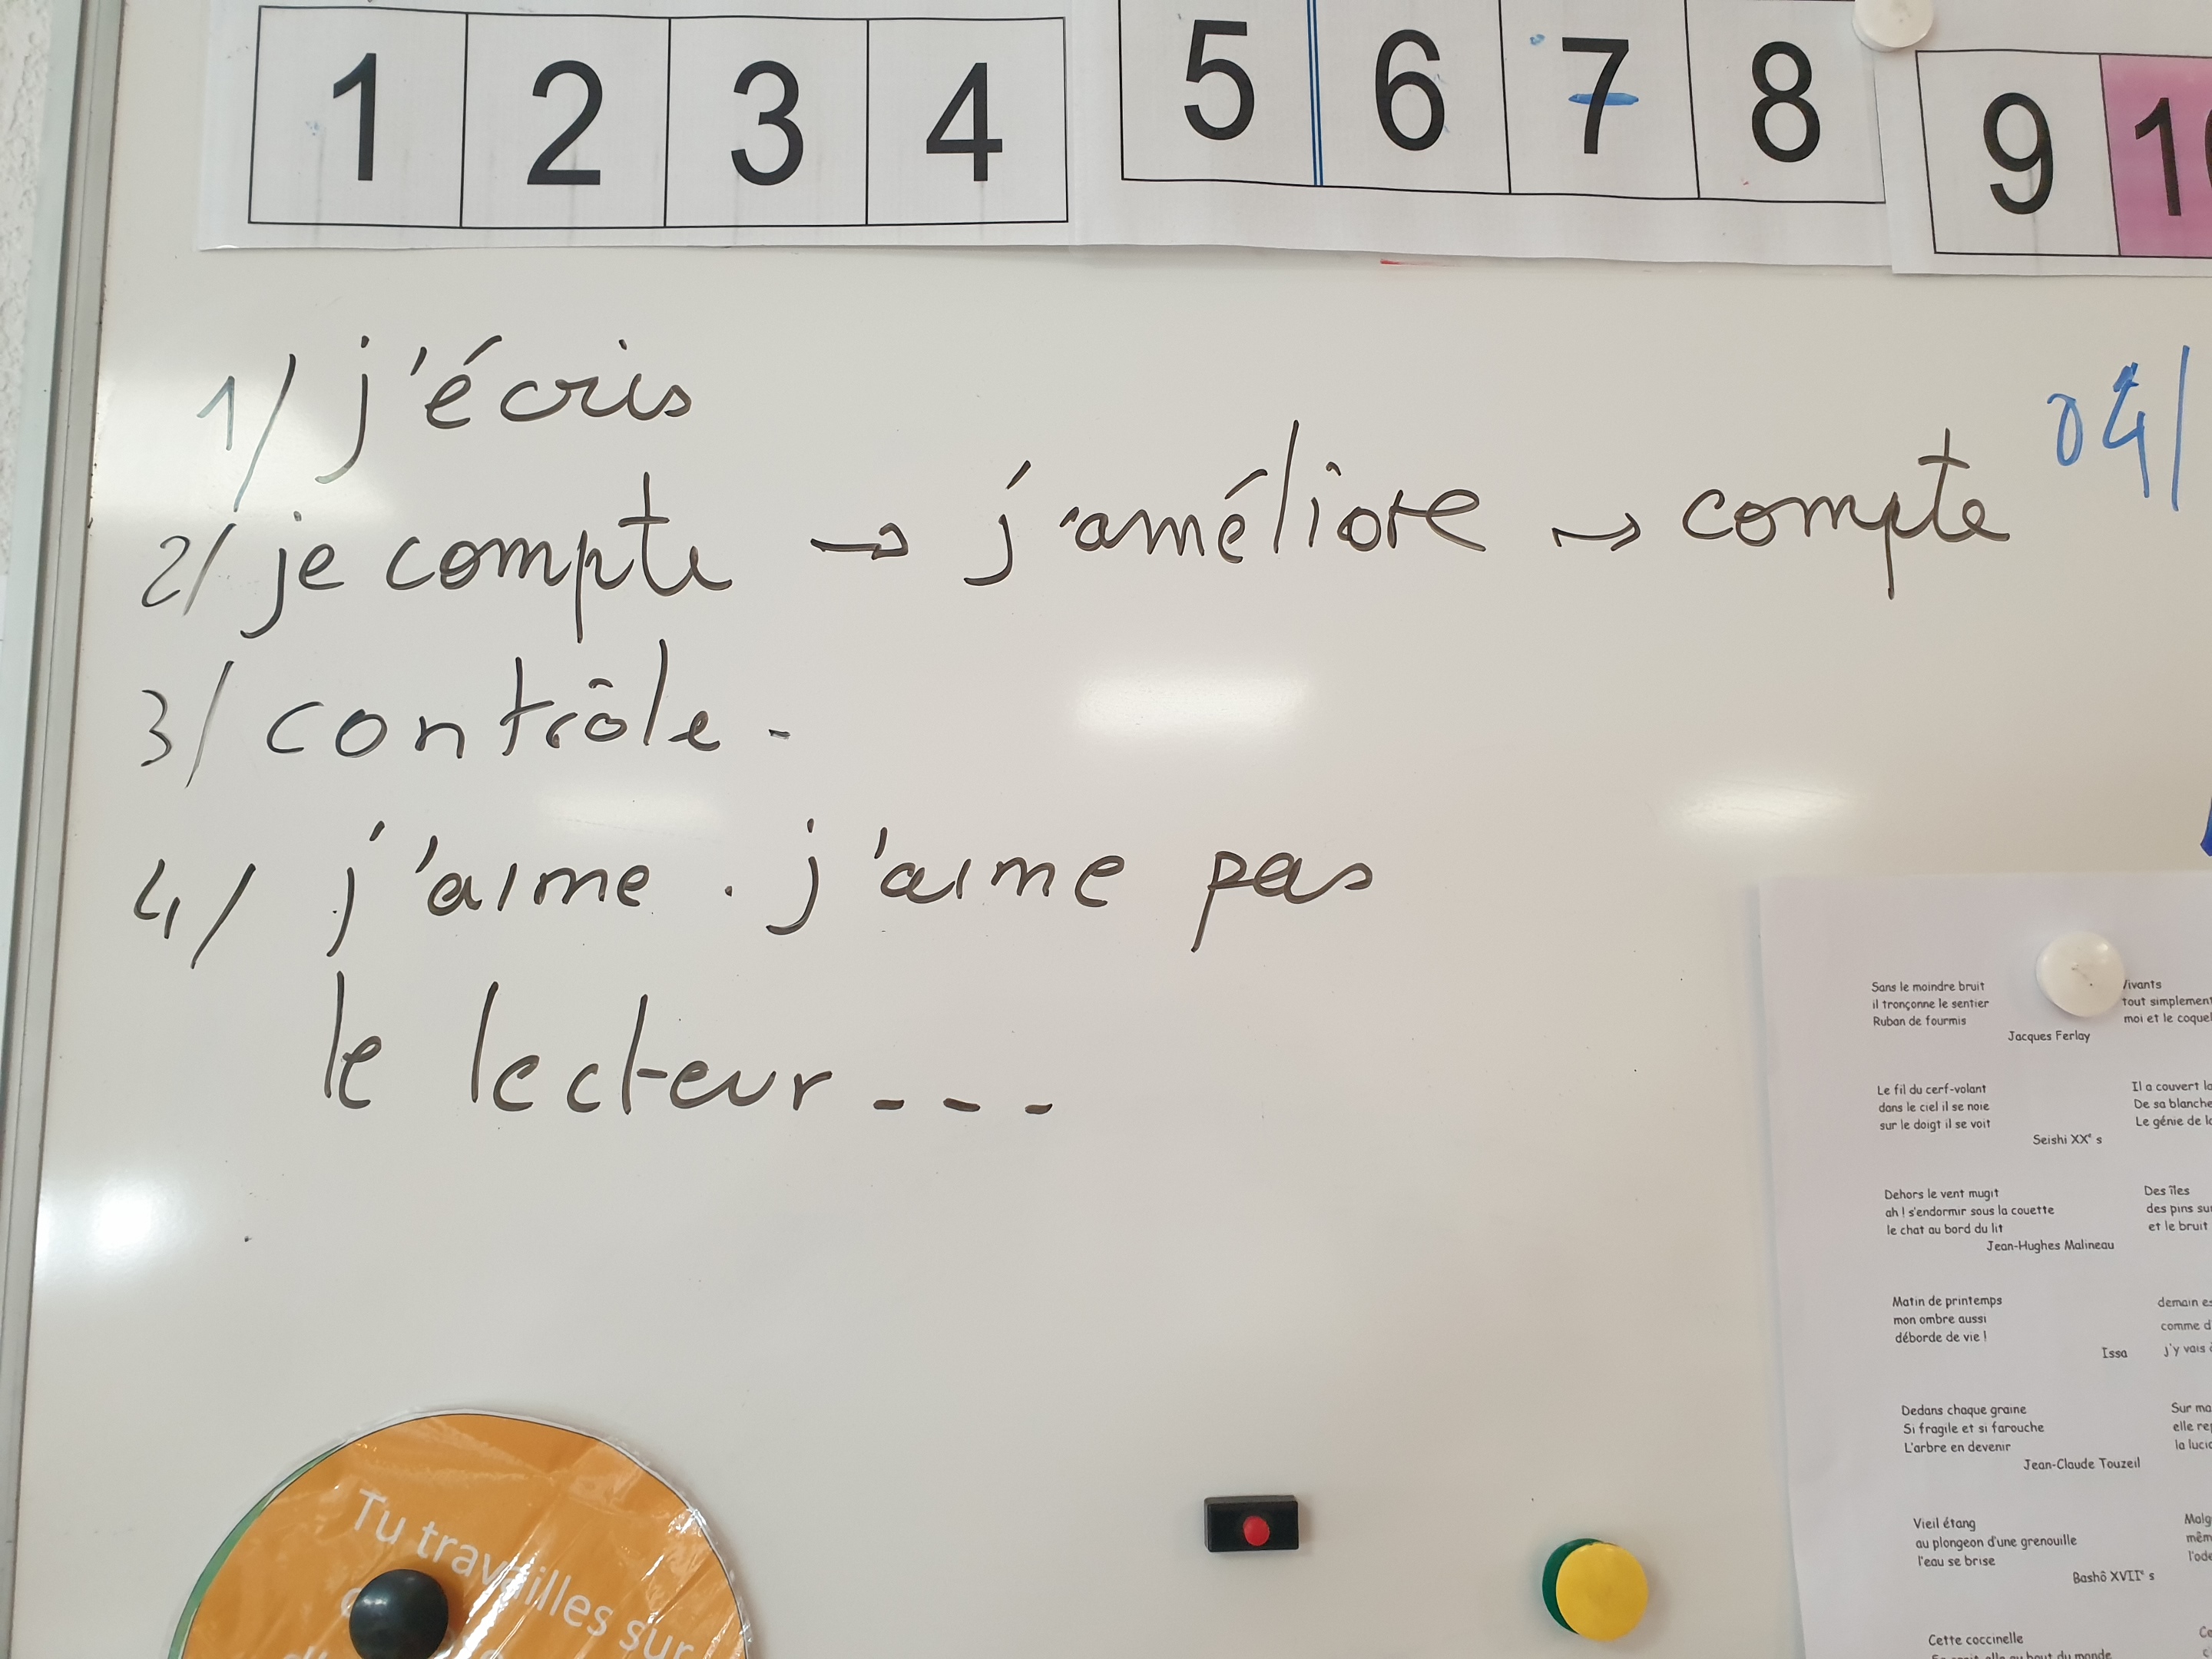 1 2 3 4 5 6 7 8 9
1/ j'écris
2/ je compte → j'améliore → compte
04/
3/ contrôle -
4/ j'aime . j'aime pas
le lecteur - - -
Sans le moindre bruit
il tronçonne le sentier
Ruban de fourmis
Jacques Ferlay
Le fil du cerf-volant
dans le ciel il se noie
sur le doigt il se voit
Seishi XXe s
Dehors le vent mugit
ah ! s'endormir sous la couette
le chat au bord du lit
Jean-Hughes Malineau
Matin de printemps
mon ombre aussi
déborde de vie !
Issa
Dedans chaque graine
Si fragile et si farouche
L'arbre en devenir
Jean-Claude Touzeil
Vieil étang
au plongeon d'une grenouille
l'eau se brise
Bashô XVIIe s
Cette coccinelle
Vivants
tout simplement
moi et le
Il a couvert
De sa blanche
Le génie de
Des îles
des pins
et le bruit
demain
comme
j'y vais
Sur
elle
la
Tu travailles sur